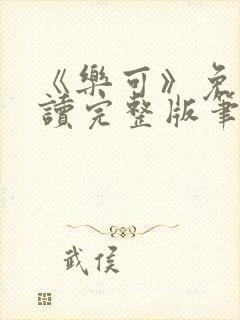 《樂可》免
讀完整版筆
武侯